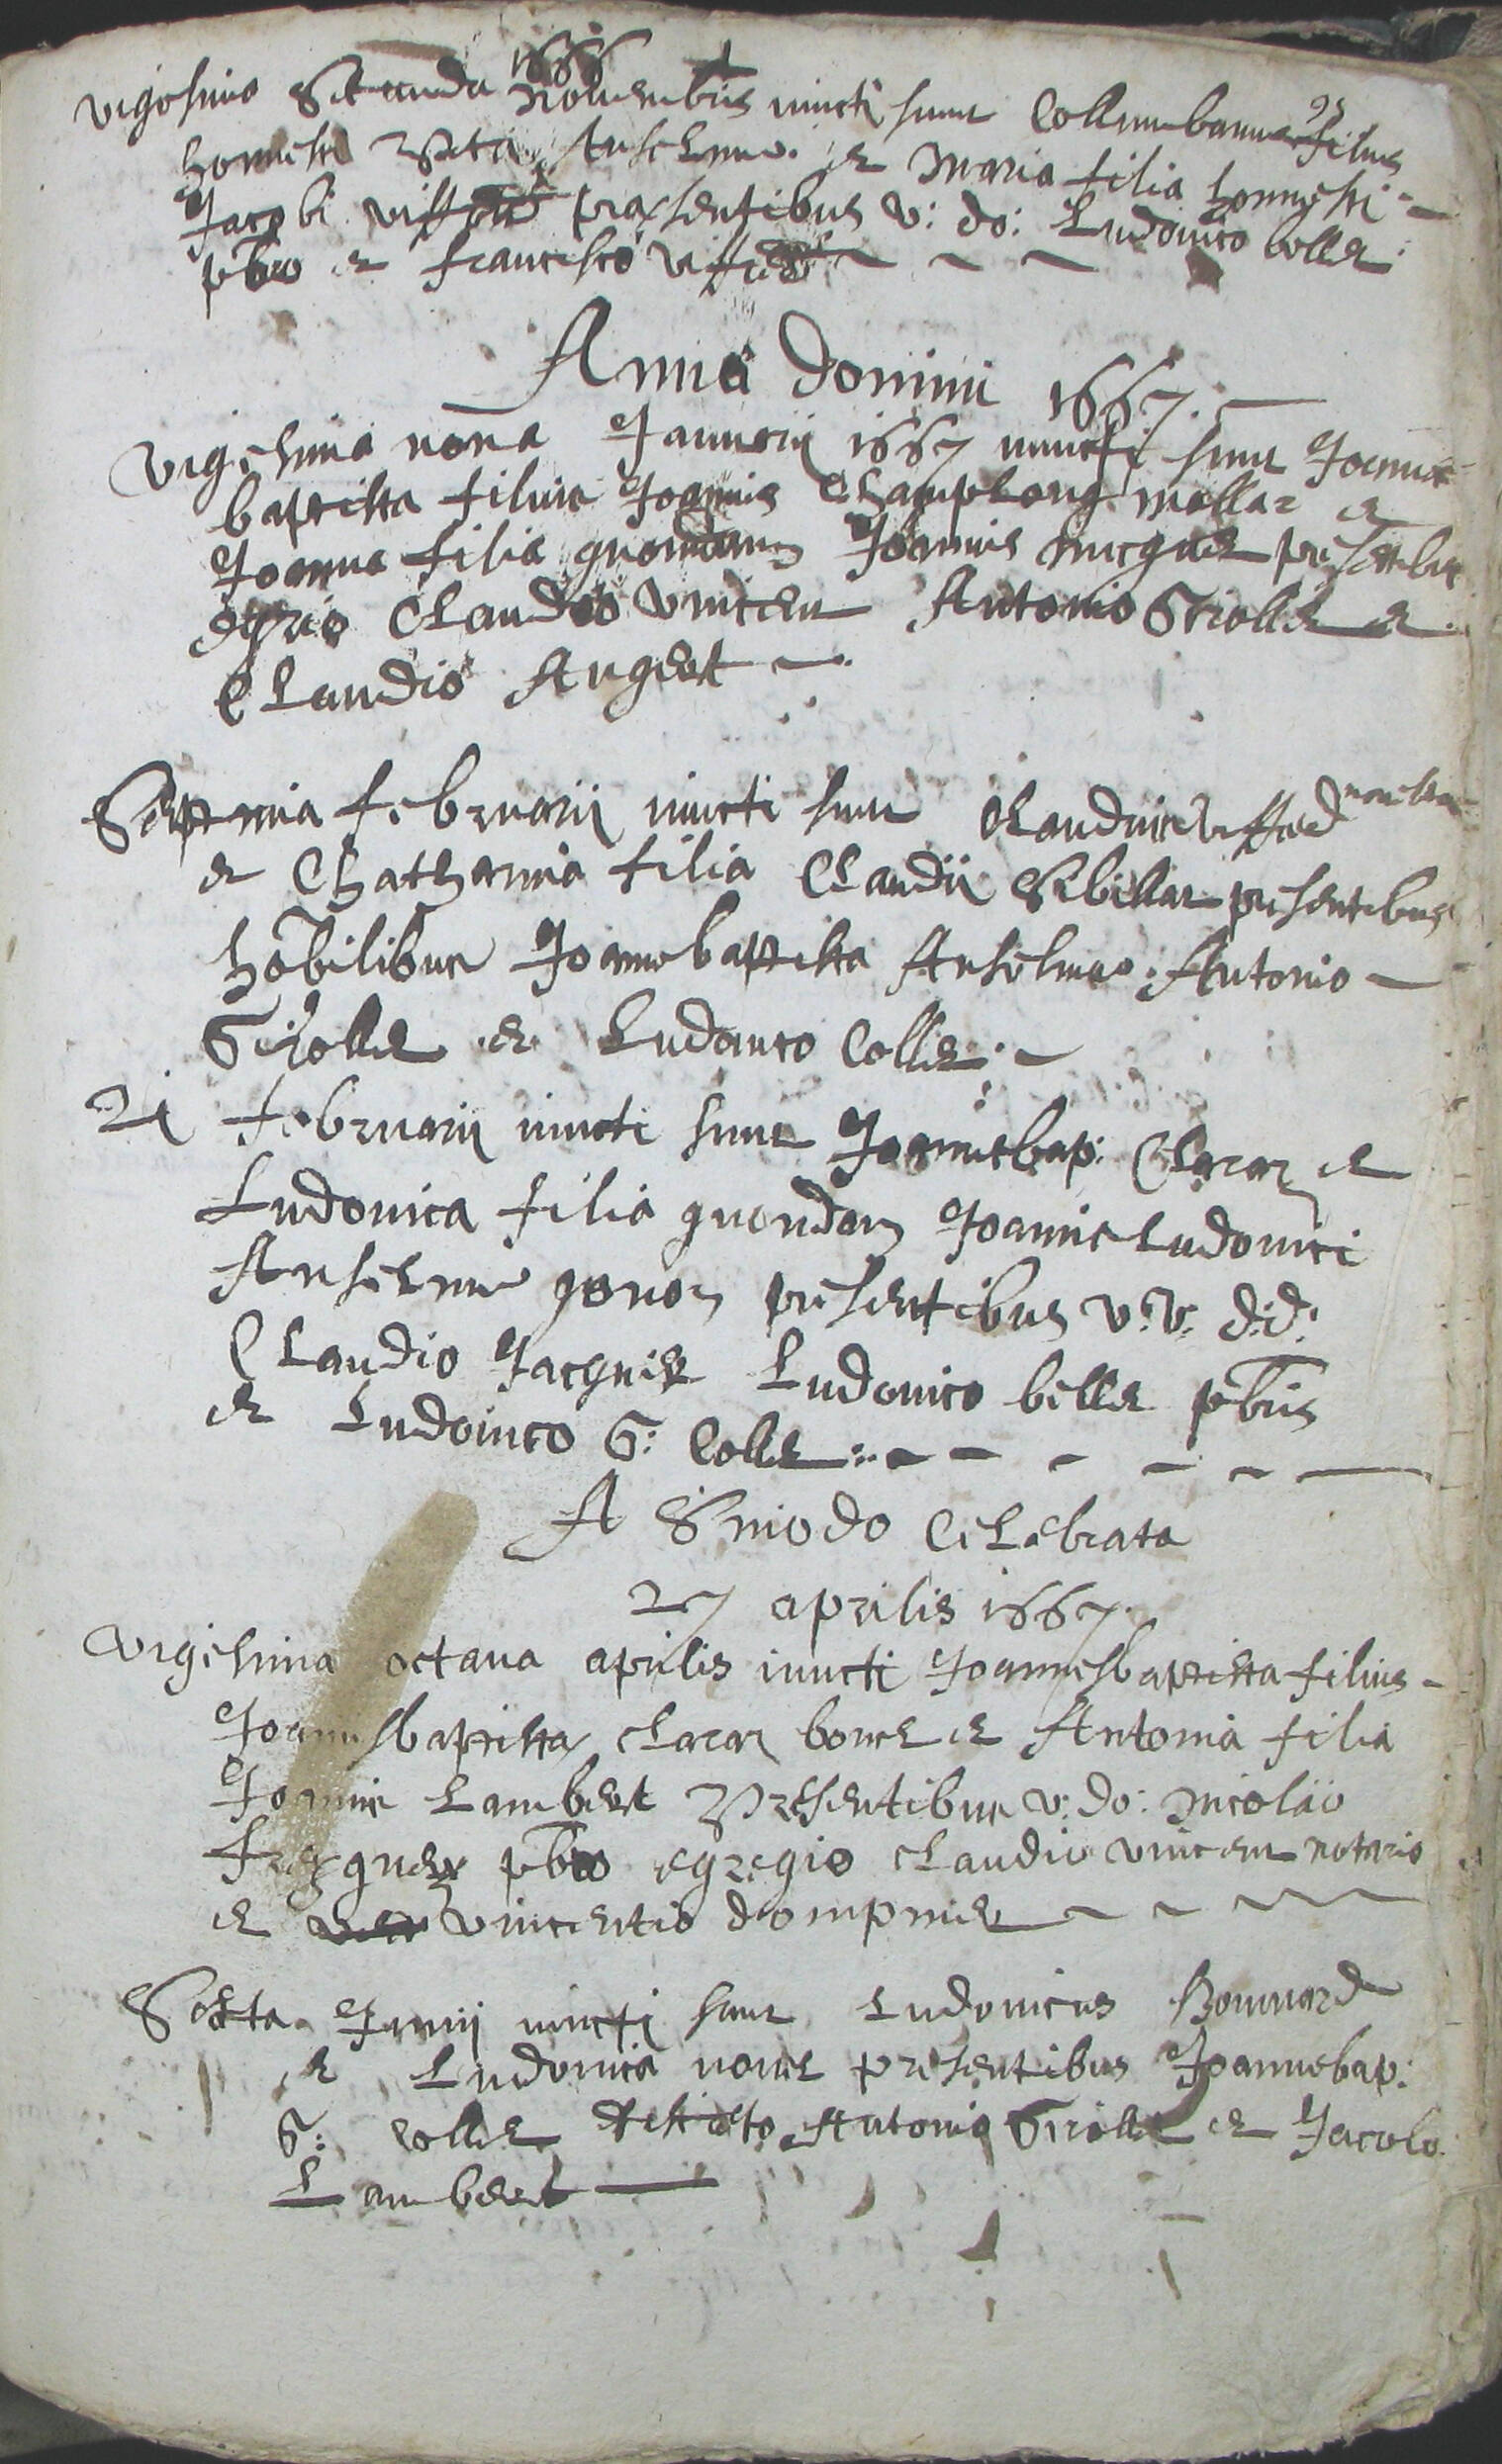 1666
vigesima secunda Novembris iuncti sunt Collumbanus filius
honnesti Anselmo. et Maria filia honnesti
Jacobi praesentibus v: do: Ludovico bollet
pbro et francisco
Anno Domini 1667.
Vigesima nona Januarii 1667 iuncti sunt Joannes
baptista filius Joannis Champlong mollar et
Joanna filia quondam Joannis presentibus
egrio Claudio vincent Antonio Girollet et
Claudio Anget
Septima februarii iuncti sunt Claudius
et Chatharina filia Claudii Sibillat presentibus
hobilibus Joannebaptista Anselmo. Antonio
Girollet et Ludovico Collet.
21 februarii iuncti sunt Joannesbap: Claraz et
Ludovica filia quondam Joannis Ludovici
Anselmo gonon presentibus v: v: d: d:
Claudio Jacquier Ludovico bellet pbris
et Ludovico G: Collet
A Sinodo Celebrata
27 aprilis 1667.
Vigesima octava aprilis iuncti Joannesbaptista filius
Joannisbaptista claraz bonet et Antonia filia
Joannis Lambert Presentibus v: do: nicolao
pbro egregio claudio vincent notario
et vincentio dompnier
Sexta Junii iuncti sunt Ludovicus Bonnard
et Ludovica novel presentibus Joannebap:
G: collet Antonio Girollet et Jacobo
Lambert